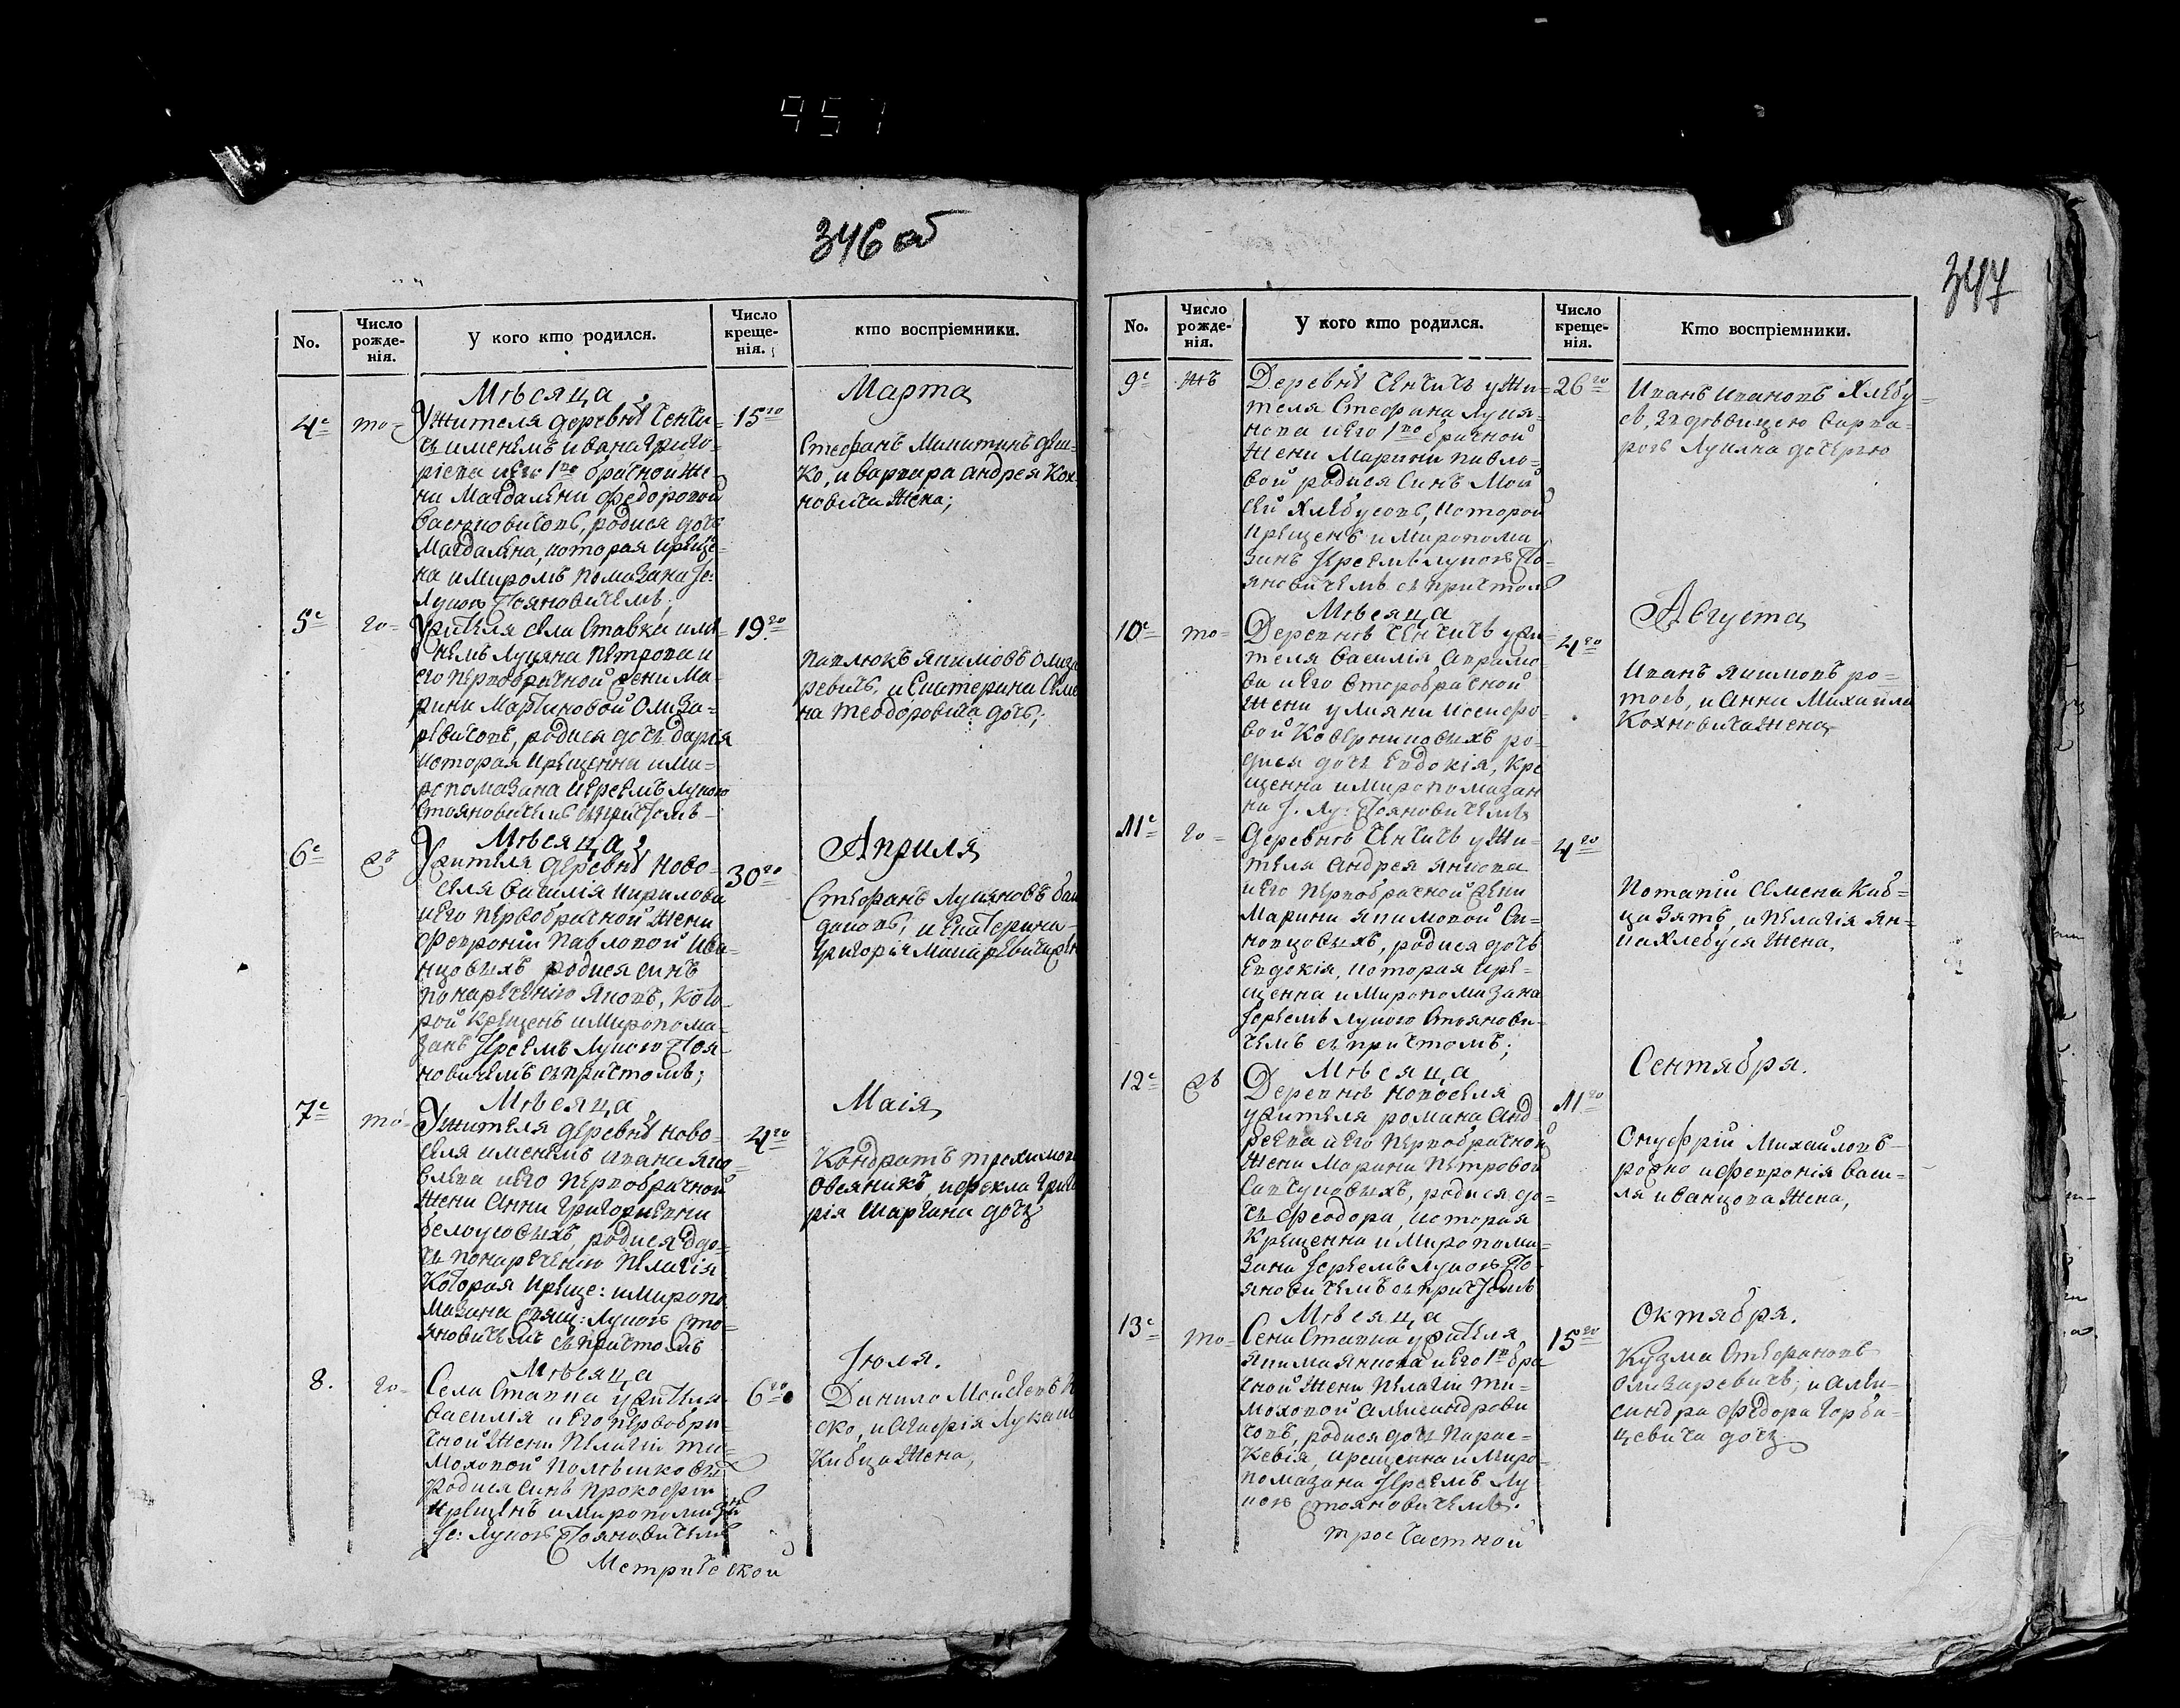 957
346 об
No.
Число рожде-нія.
У кого кто родился.
Число креще-нія.
кто воспріемники.
Мѣсяца
Марта
4е
то-
Ужителя деревнѣ Ченчи-
15го
чъ именемъ ивана Григо-
ріева иего 1по брачной Же
ни Магдалени Федоровой
родися дочъ
Магдалена, которая Креще-
на имиромъ помазана Іе:
Лукою Стояновичемъ;
Стефанъ
ко, и варвара андрея Кох
новича Жена;
5е
го-
Ужителя села Ставка имѣ-
19го
немъ Луцяна Петрова и
его первобрачной Жени Ма-
рини Мартиновой Олиза-
ревичовъ, родися дочъ дарїя
которая Крещенна ими-
ропомазана иереемъ Лукою
Стояновичемъ съпричтомъ
Павлюкъ якимовъ Олиза
ревичъ, и Екатерина Семе
на теодоровича дочъ;
Мѣсяца
Априля
6е
Ужителя деревнѣ ново-
30го
селя василія кирилова
иего первобрачной Жени
Февронїи Павловой ива-
нцовыхъ родися синъ
понареченію Яковъ, Кото-
рой Крещенъ имиропома-
занъ Іереемъ Лукою Стоя-
новичемъ съпричтомъ;
Стефанъ Лукяновъ
и Екатерина
Григорія
Мѣсяца
Маія
7е
то-
Ужителя деревнѣ ново-
4го
селя именемъ ивана яко-
влева иего первобрачной
Жени Анни Григориевни
белоусовыхъ, родися до-
чъ понареченію Пелагія
Которая Креще: имиропо
мазана Свящ: Лукою Сто-
яновичемъ съпричтомъ
Кондратъ трохимовъ
Овсяникъ, ифекла Григо
рія Марчана дочъ
Мѣсяца
Іюля.
8.
го-
Села Ставка ужителя
6го
василія иего первобра-
чной Жени Пелагіи ти-
моховой
родися синъ прокофій
Крещенъ имиропомазанъ
Іе: Лукою Стояновичемъ
Данило Моисеевъ
ско, и Агафія Лукаш
Кибца Жена,
Метрической
347
No.
Число рожде-нія.
У кого кто родился.
Число креще-нія.
Кто воспріемники.
9е
Деревнѣ Ченчичъ ужи-
26го
теля Стефана Лукя-
нова иего 1по брачной
Жени Марини павло-
вой родися Синъ Мои
сей Хлебусовъ, Которой
Крещенъ и Миропома
занъ Іереемъ Лукою Сто-
яновичемъ съ причтомъ
Иванъ Ивановъ Хлебу-
въ, зъ девицею варва-
рою Лукяна дочерію
Мѣсяца
Августа
10е
то-
Деревнѣ Ченчичъ ужи-
4го
теля василія Аврамо-
ва иего второбрачной
Жени улияни иосифо-
вой Коверниковыхъ ро-
дися дочъ Евдокія, Кре
щенна имиропомазан
на І. Лу: Стояновичемъ
Иванъ якимовъ ро-
тось, и Анна Михаила
Кохновича Жена,
11е
го-
Деревнѣ Ченчичъ ужи-
4го
теля андрея янкова
иего первобрачной Жени
Марини якимовой
родися дочъ
Евдокія, Которая Кре-
щенна имиропомазана
Іереемъ Лукою Стоянови-
чемъ съпричтомъ;
Потапій Семена Киб-
ца зять, и Пелагія ян-
ка хлебуся Жена,
Мѣсяца
Сентября.
12е
Деревнѣ новоселя
11го
ужителя романа анд
реева иего первобрачной
Жени Марини Петровой
родися до-
чъ Феодора, которая
Крещенна имиропома-
зана Іереемъ Лукою Сто-
яновичемъ съпричтомъ
Онуфрій Михайловъ
и Февронія васи-
ля иванцова Жена,
Мѣсяца
Октября.
13е
то-
Села Ставка ужителя
15го
якима янкова иего 1по бра
чной Жени Пелагіи ти-
моховой александрови
човъ, родися дочъ Парас-
Кевія, крещенна имиро-
помазана Іереемъ Лу
кою Стояновичемъ.
Кузма Стефановъ
Олизаревичъ; и алек-
сандра Федора Горба-
цевича дочъ
троечастной